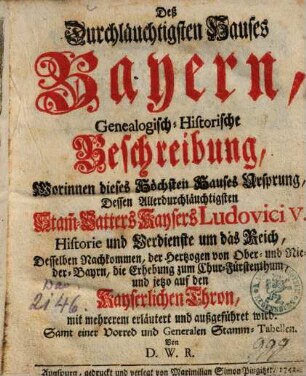 Deß
Durchläuchtigsten Hauses
Bayern,
Genealogisch-Historische
Beschreibung,
Worinnen dieses Höchsten Hauses Ursprung,
Dessen Allerdurchläuchtigsten
Stam̄-Vatters Kaysers Ludovici V.
Historie und Verdienste um das Reich,
Desselben Nachkommen, der Hertzogen von Ober- und Nie-
der-Bayrn, die Erhebung zum Chur-Fürstenthum,
und jetzo auf den
Kayserlichen Thron,
mit mehrerem erläutert und außgeführet wird.
Samt einer Vorred und Generalen Stamm-Tabellen.
Von
D. W. R.
Augspurg, gedruckt und verlegt von Maximilian Simon Pingitzer, 1742.
2146.
999